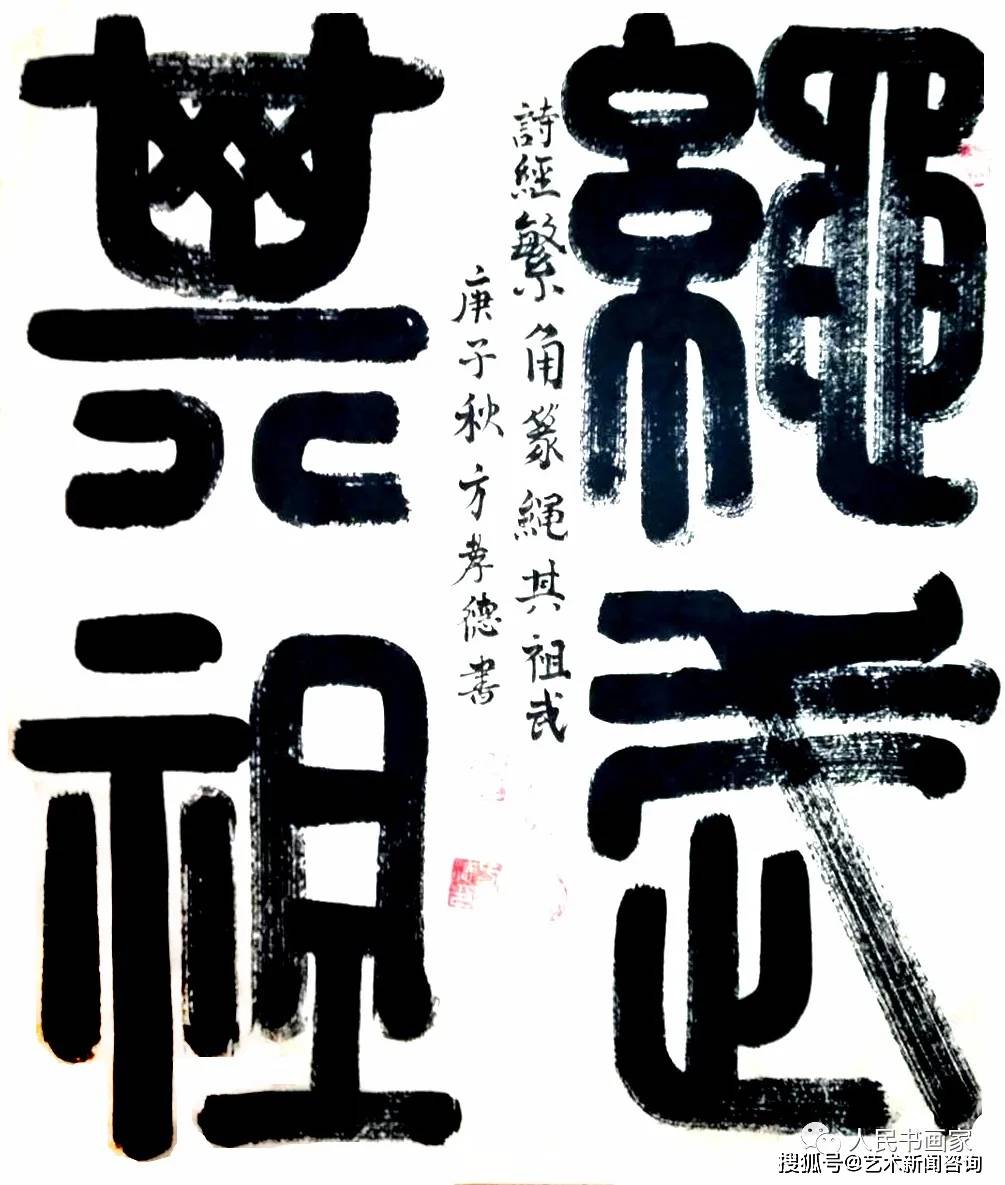 繩其
祖武
詩經繁角篆縄其祖武
庚子秋方孝德書
人民书画家
搜狐号@艺术新闻咨询